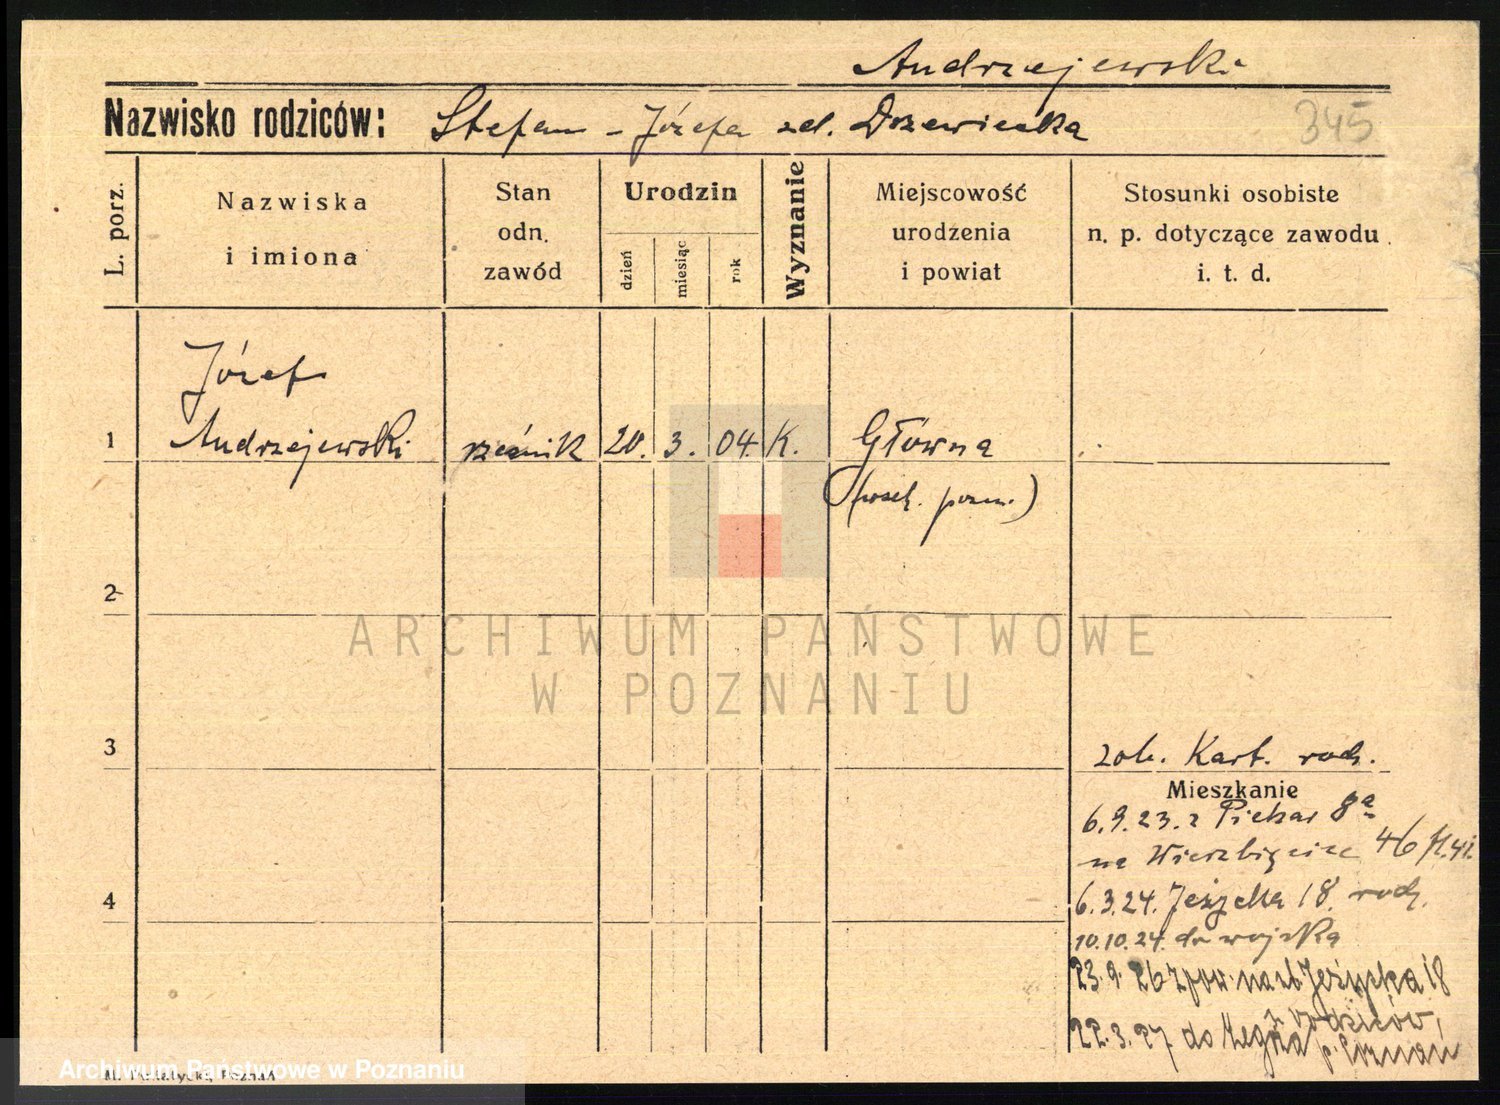 Andrzejewski
Nazwisko rodziców: Stefan - Józefa zd. Drzewiecka
345
L. porz.
Nazwiska
i imiona
Stan
odn.
zawód
Urodzin
dzień
miesiąc
rok
Wyznanie
Miejscowość
urodzenia
i powiat
Stosunki osobiste
n. p. dotyczące zawodu
i. t. d.
Józef
1 Andrzejewski rzeźnik 20. 3. 04. K. Główna
(wsch. pozn.)
2
3
zob. Kart. rodz.
Mieszkanie
6.9.23. z Piekar 8a
na Wierzbięcice 46
4
6.3.24. Jeżycka 18. rodz.
10.10.24. do wojska
23.9.26 z pow. na ul. Jeżycka 18
z rodziców,
22.3.27 do Zegrza p. Poznań
ARCHIWUM PAŃSTWOWE
W POZNANIU
Archiwum Państwowe w Poznaniu
M. Poznań